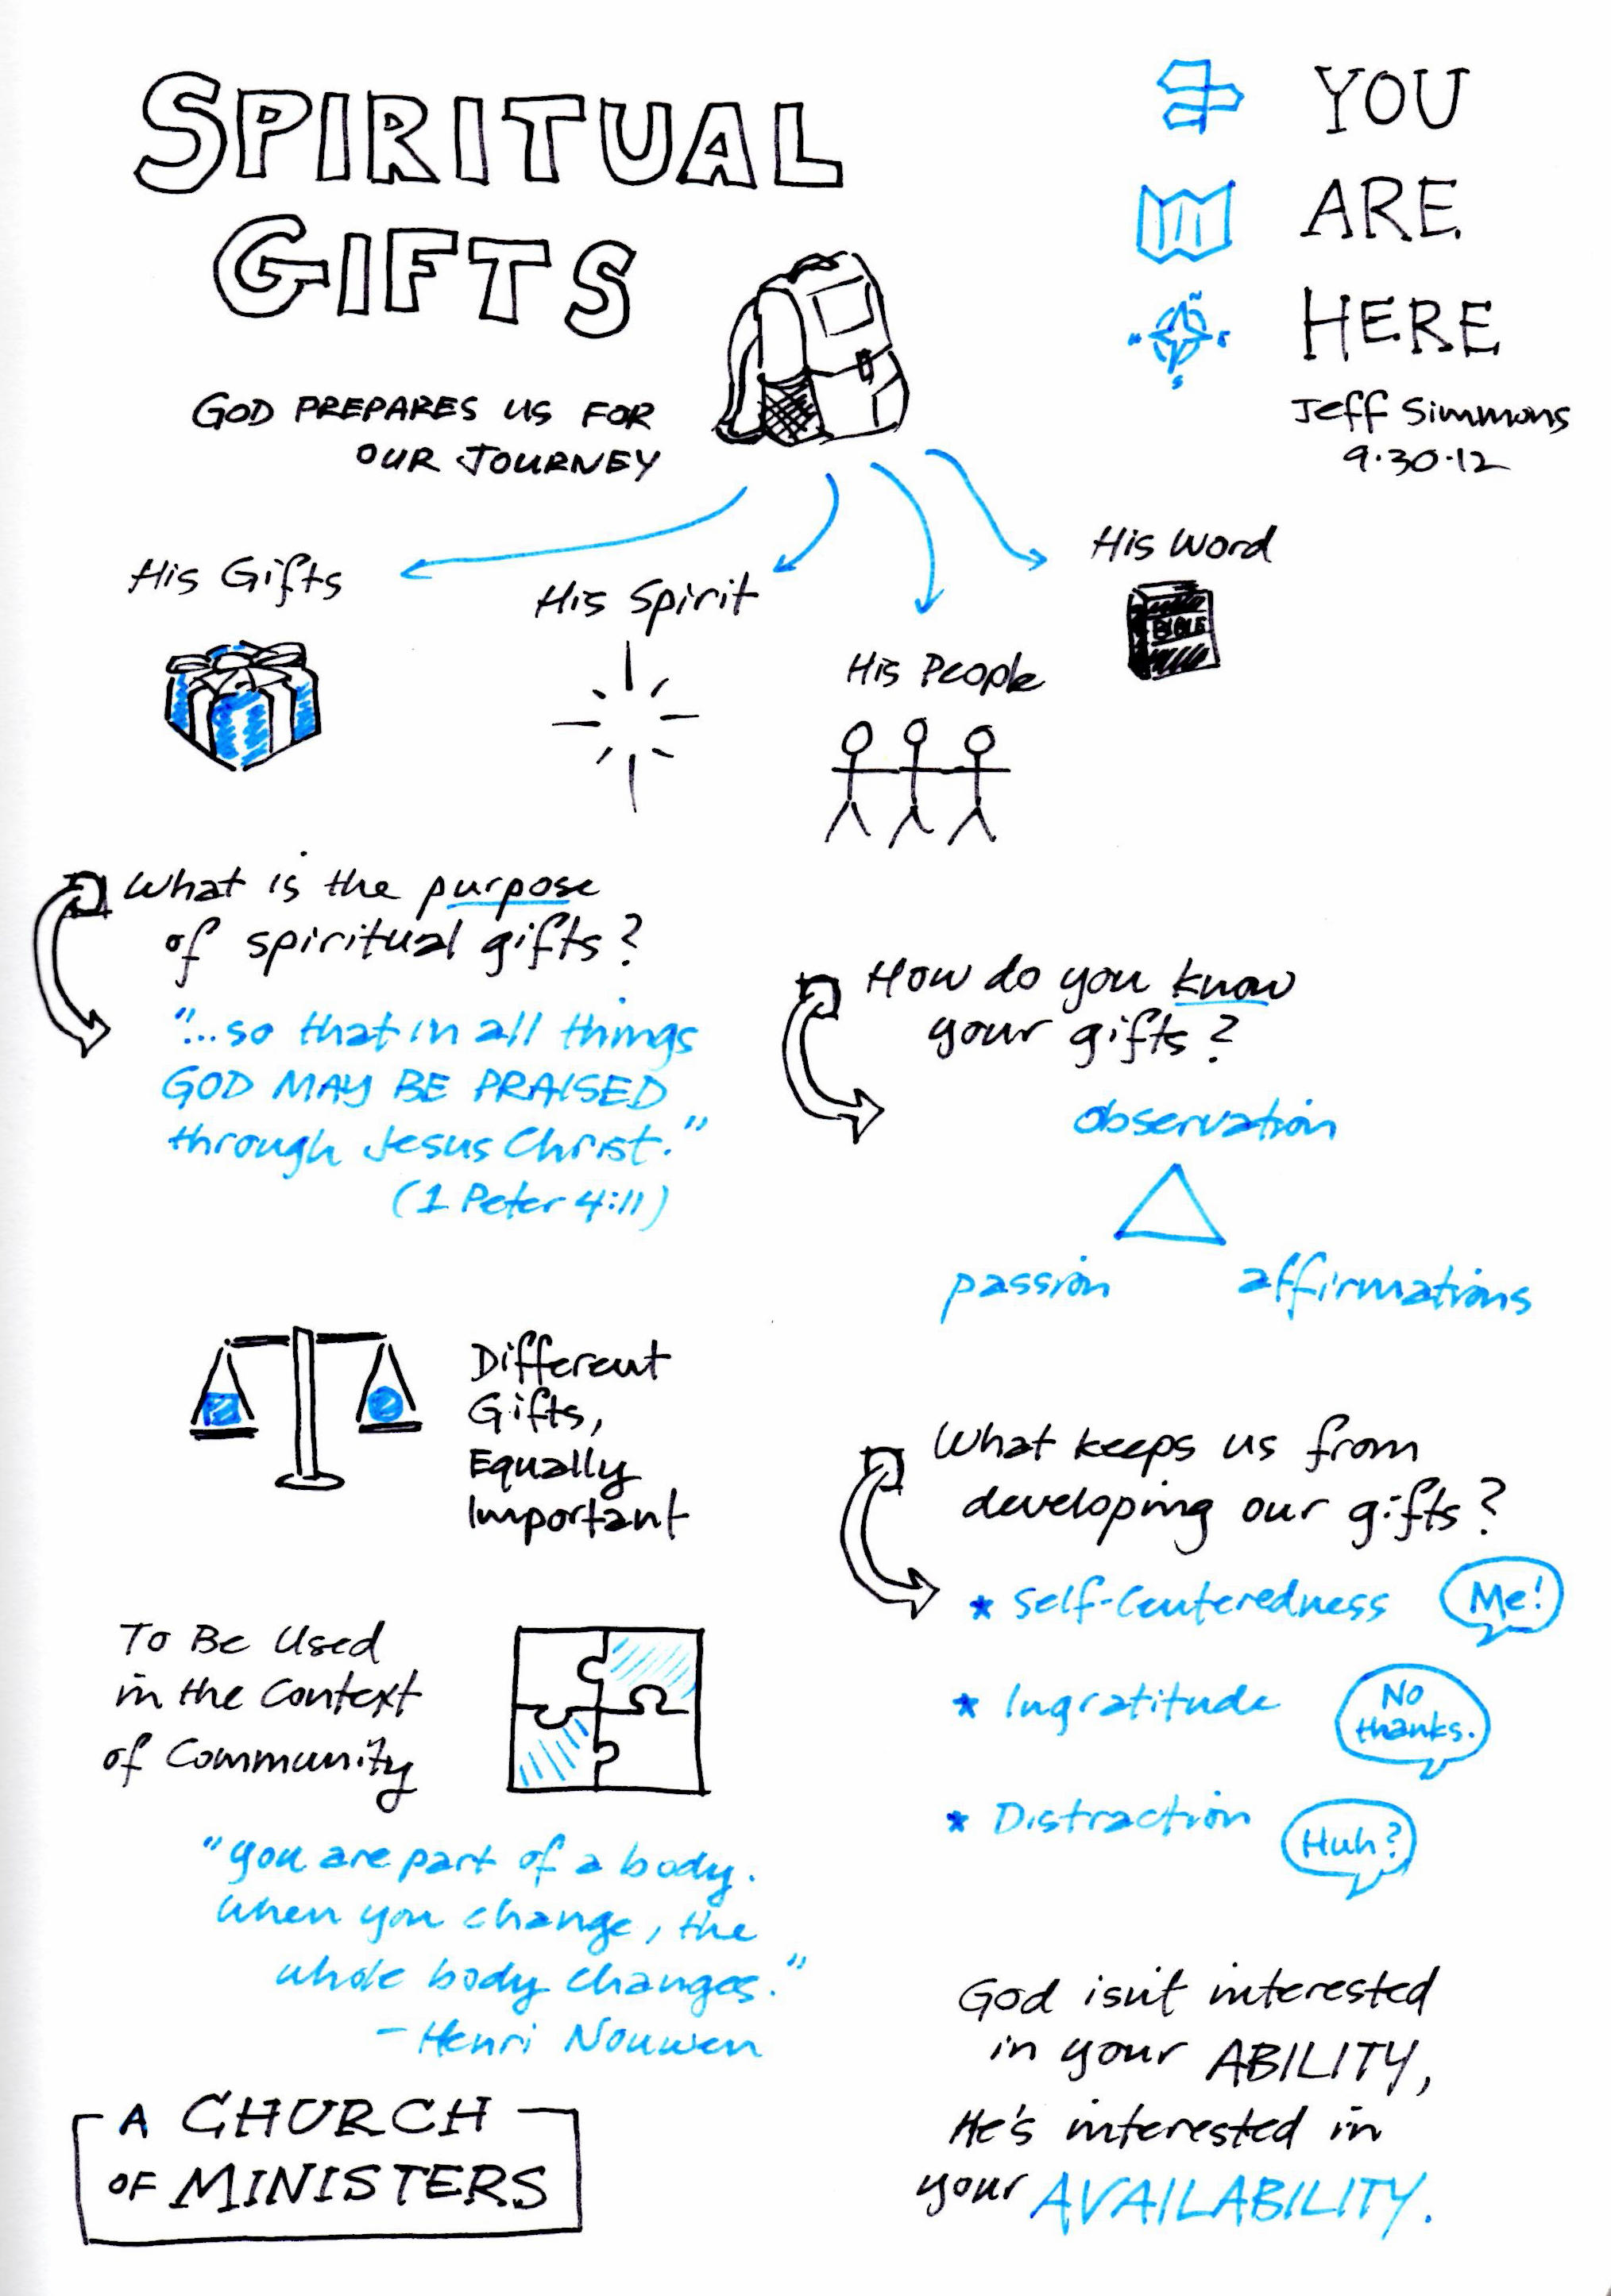 SPIRITUAL
GIFTS
GOD PREPARES US FOR
OUR JOURNEY
YOU
ARE
HERE
N
E
S
Jeff Simmons
9.30.12
His Gifts
His Spirit
His People
His Word
BIBLE
What is the purpose
of spiritual gifts?
"...so that in all things
GOD MAY BE PRAISED
through Jesus Christ."
(1 Peter 4:11)
How do you know
your gifts?
observation
passion
affirmations
Different
Gifts,
Equally
Important
What keeps us from
developing our gifts?
* Self-Centeredness
Me!
* Ingratitude
No
thanks.
* Distraction
Huh?
To Be Used
in the Context
of Community
"you are part of a body.
When you change, the
whole body changes."
- Henri Nouwen
A CHURCH
OF MINISTERS
God isn't interested
in your ABILITY,
He's interested in
your AVAILABILITY.